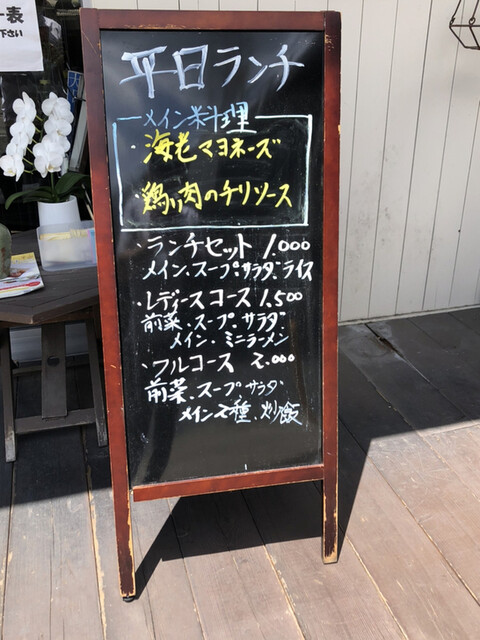 一表
下さい
平日ランチ
メイン料理
・海老マヨネーズ
・鶏肉のチリソース
・ランチセット 1.000
メイン.スープ.サラダ.ライス
・レディースコース 1.500
前菜.スープ.サラダ
メイン.ミニラーメン
・フルコース 2.000
前菜.スープ.サラダ
メイン2種.炒飯